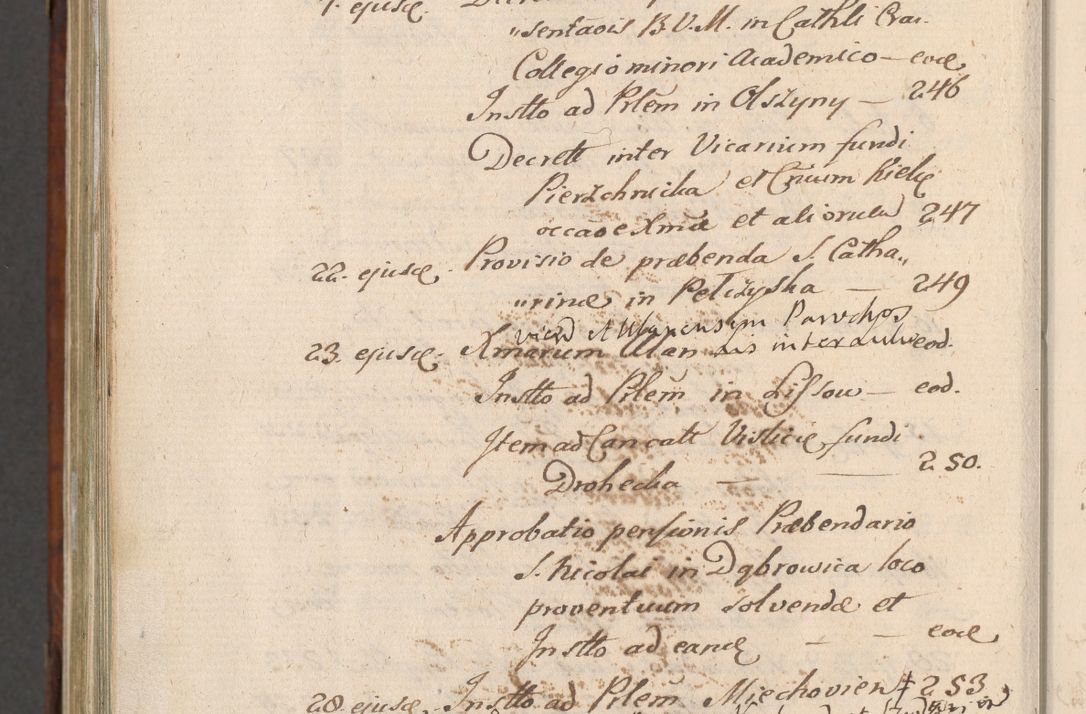 „sentaōis B.V.M. in Cathli Crac.
Collegio minori Academico — eod.
Instto ad Plēm in Olszyny — 246
Decrett inter Vicarium fundi
Pierzchnicka et Cn̄um Kielc
occāoe Xmæ et aliorum 247
22. ejusd. Provisio de præbenda S. Catha„
„rinæ in Pełczyska — 249
Parochos
23. ejusd. Xmarum inter eod.
Instto ad Plēm in Lissow — eod.
Item ad Cancatt Vislicie fundi
Drohecka — 250.
Approbatio pensionis Præbendario
S. Nicolai in Dąbrowica loco
proventuum solvendæ et
Instto ad eand — eod.
28. ejusd. Instto ad Plēm Miechovien ‡ 253